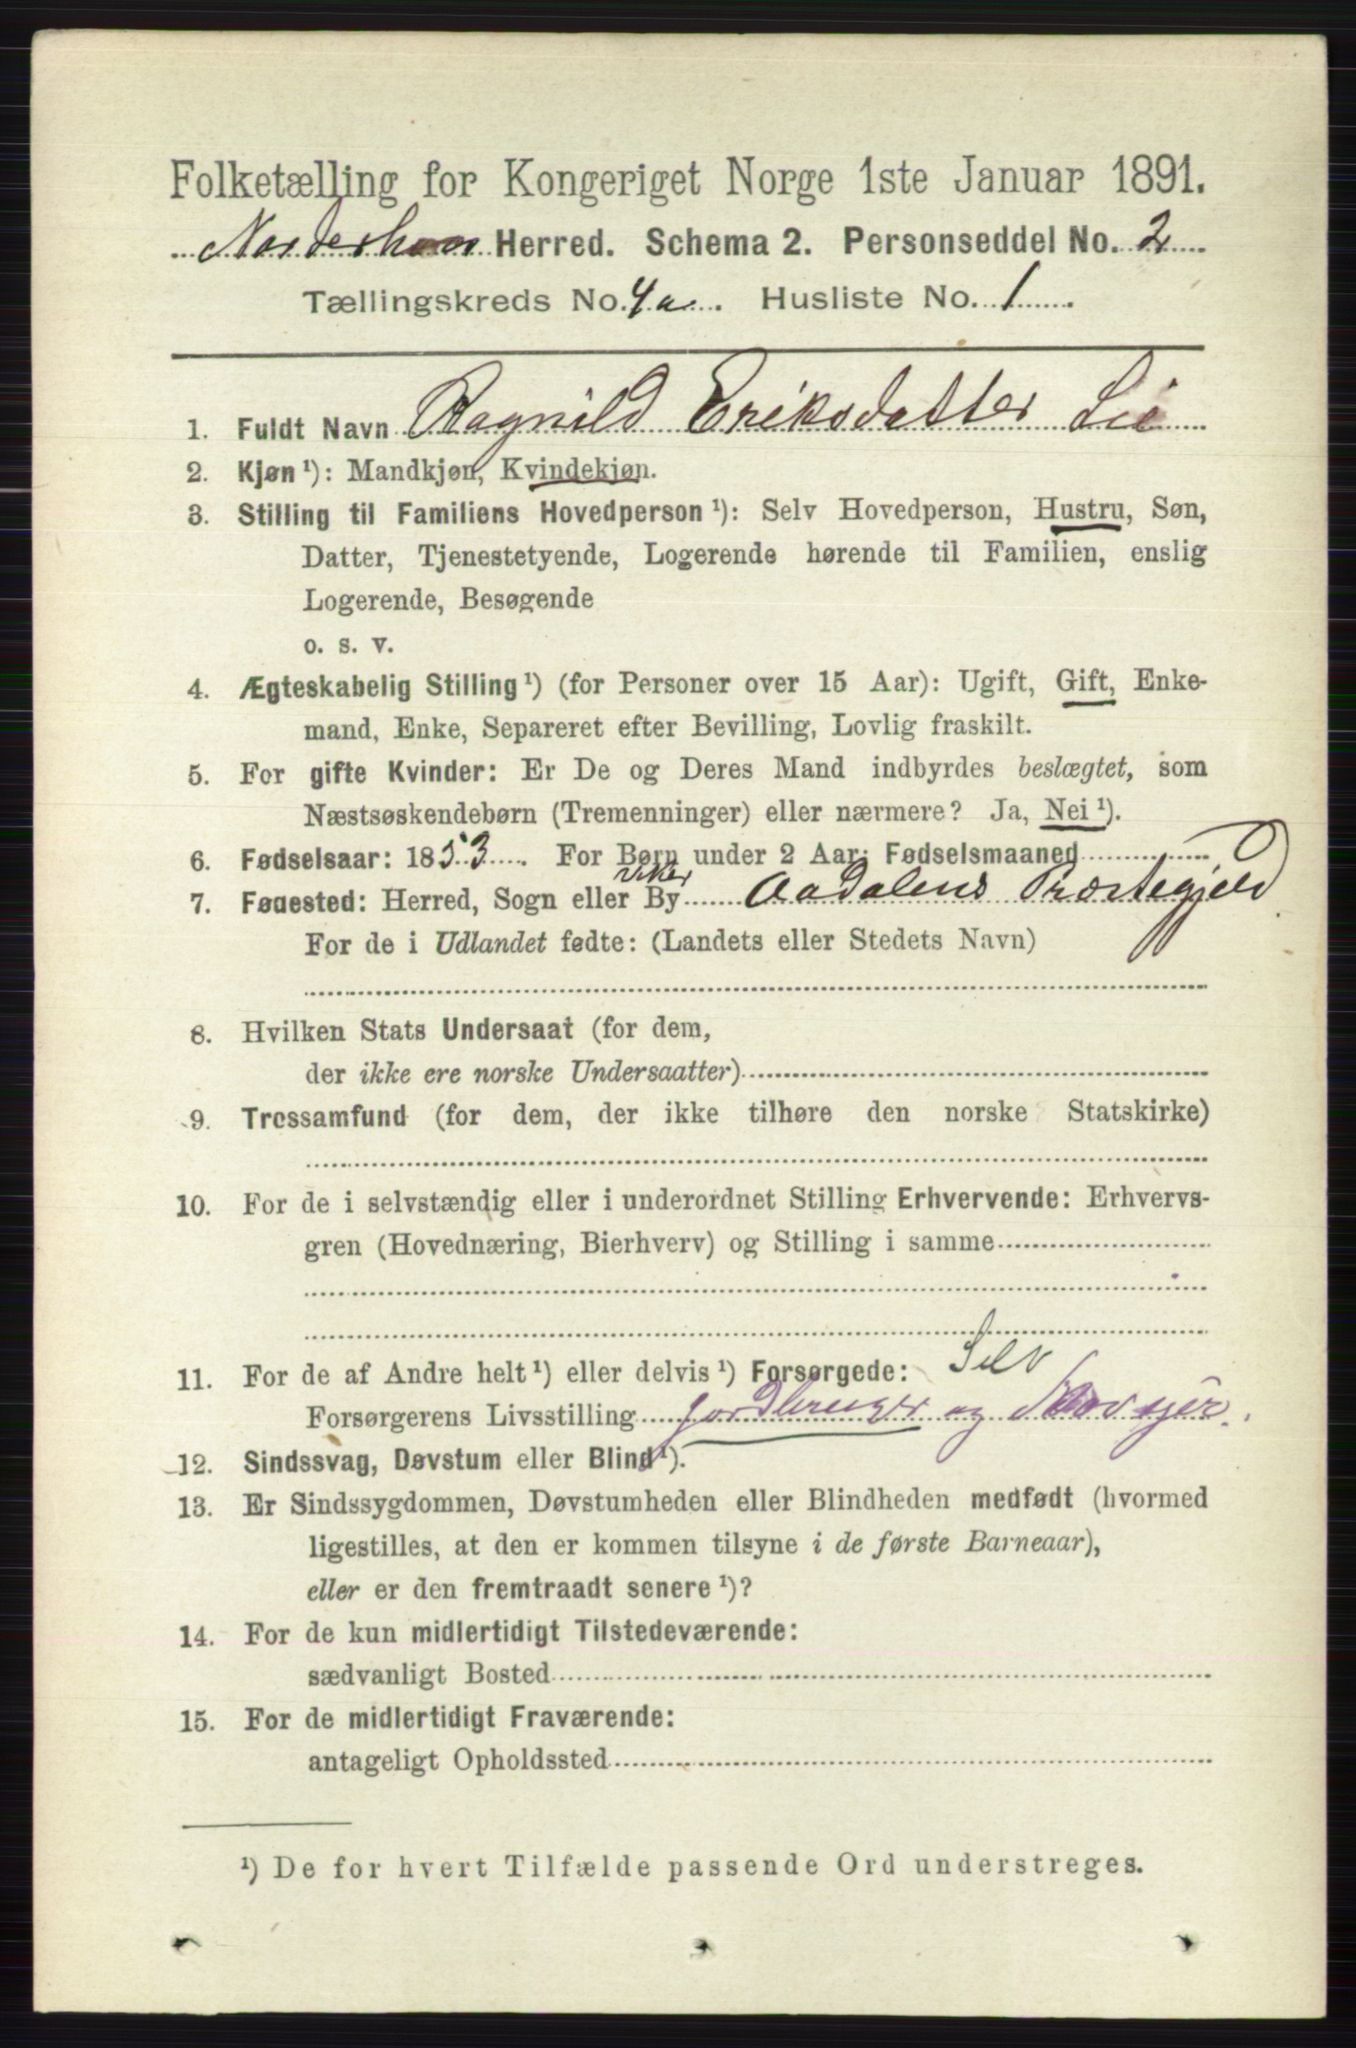 Folketælling for Kongeriget Norge 1ste Januar 1891.
Norderhov Herred. Schema 2. Personseddel No. 2
Tællingskreds No. 4a. Husliste No. 1
1. Fuldt Navn Ragnild Eriksdatter Lie
2. Kjøn¹): Mandkjøn, Kvindekjøn.
3. Stilling til Familiens Hovedperson¹): Selv Hovedperson, Hustru, Søn,
Datter, Tjenestetyende, Logerende hørende til Familien, enslig
Logerende, Besøgende
o. s. v.
4. Ægteskabelig Stilling¹) (for Personer over 15 Aar): Ugift, Gift, Enke-
mand, Enke, Separeret efter Bevilling, Lovlig fraskilt.
5. For gifte Kvinder: Er De og Deres Mand indbyrdes beslægtet, som
Næstsøskendebørn (Tremenninger) eller nærmere? Ja, Nei¹).
6. Fødselsaar: 1853. For Børn under 2 Aar: Fødselsmaaned
Viker
7. Føaested: Herred, Sogn eller By Aadalens Præstegjeld
For de i Udlandet fødte: (Landets eller Stedets Navn)
8. Hvilken Stats Undersaat (for dem,
der ikke ere norske Undersaatter)
9. Trossamfund (for dem, der ikke tilhøre den norske Statskirke)
10. For de i selvstændig eller i underordnet Stilling Erhvervende: Erhvervs-
gren (Hovednæring, Bierhverv) og Stilling i samme
11. For de af Andre helt¹) eller delvis¹) Forsørgede: Selv
Forsørgerens Livsstilling jordbruger og Skovejer.
12. Sindssvag, Døvstum eller Blind¹).
13. Er Sindssygdommen, Døvstumheden eller Blindheden medfødt (hvormed
ligestilles, at den er kommen tilsyne i de første Barneaar),
eller er den fremtraadt senere¹)?
14. For de kun midlertidigt Tilstedeværende:
sædvanligt Bosted
15. For de midlertidigt Fraværende:
antageligt Opholdssted
¹) De for hvert Tilfælde passende Ord understreges.